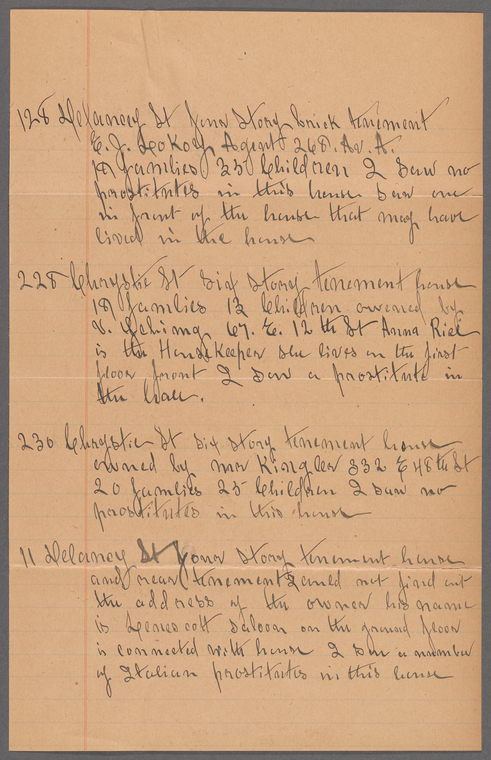 128 Delancey St four story brick tenement
E. J. Agent 268. Av. A.
19 families 25 Children I saw no
prostitutes in this house saw one
in front of the house that may have
lived in the house
228 Chrystie St Six Story tenement house
19 families 13 Children owened by
67. E. 12th St Anna Riel
is the Housekeeper she lives on the first
floor front I saw a prostitute in
the hall.
230 Chrystie St six story tenement house
owned by mr Kingler 332 E 48th St
20 families 25 Children I saw no
prostitutes in this house
11 Delancey St four story tenement house
and rear tenement I could not find out
the address of the owner his name
is saloon on the ground floor
is connected with house I saw a number
of Italian prostitutes in this house